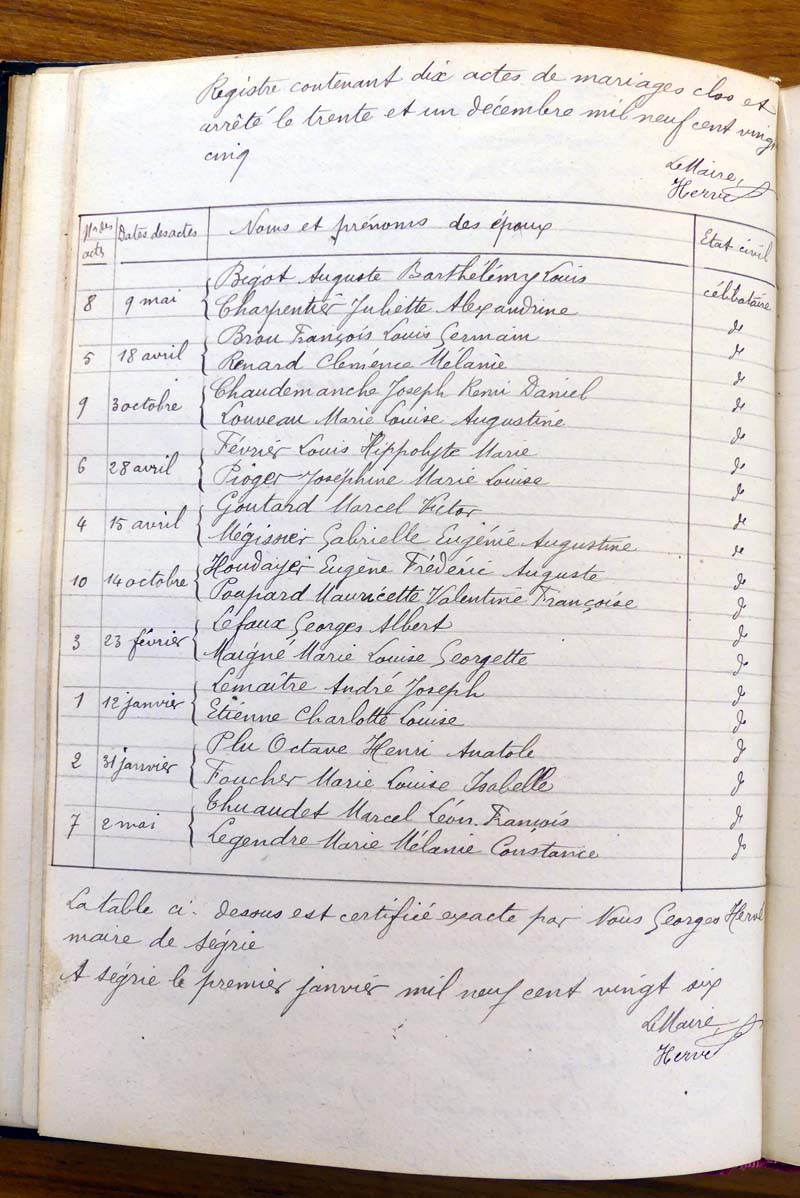 Registre contenant dix actes de mariages clos et
arrêté le trente et un décembre mil neuf cent vingt
cinq
Le Maire,
Hervé
Nos des actes Dates des actes Noms et prénoms des époux Etat civil
Bigot Auguste Barthélémy Louis célibataire
8 9 mai
Charpentier Juliette Alexandrine do
Brou François Louis Germain do
5 18 avril
Renard Clémence Mélanie do
Chaudemanche Joseph Remi Daniel do
9 3 octobre
Louveau Marie Louise Augustine do
Février Louis Hippolyte Marie do
6 28 avril
Pioger Joséphine Marie Louise do
Goutard Marcel Victor do
4 15 avril
Mégissier Gabrielle Eugénie Augustine do
Houdayer Eugène Frédéric Auguste do
10 14 octobre
Poupard Mauricette Valentine Françoise do
Lefaux Georges Albert do
3 23 février
Maigné Marie Louise Georgette do
Lemaître André Joseph do
1 12 janvier
Etienne Charlotte Louise do
Plu Octave Henri Anatole do
2 31 janvier
Foucher Marie Louise Isabelle do
Thuaudet Marcel Léon François do
7 2 mai
Legendre Marie Mélanie Constance do
La table ci-dessus est certifiée exacte par Nous Georges Hervé
maire de Ségrie
A Ségrie le premier janvier mil neuf cent vingt six
Le Maire,
Hervé